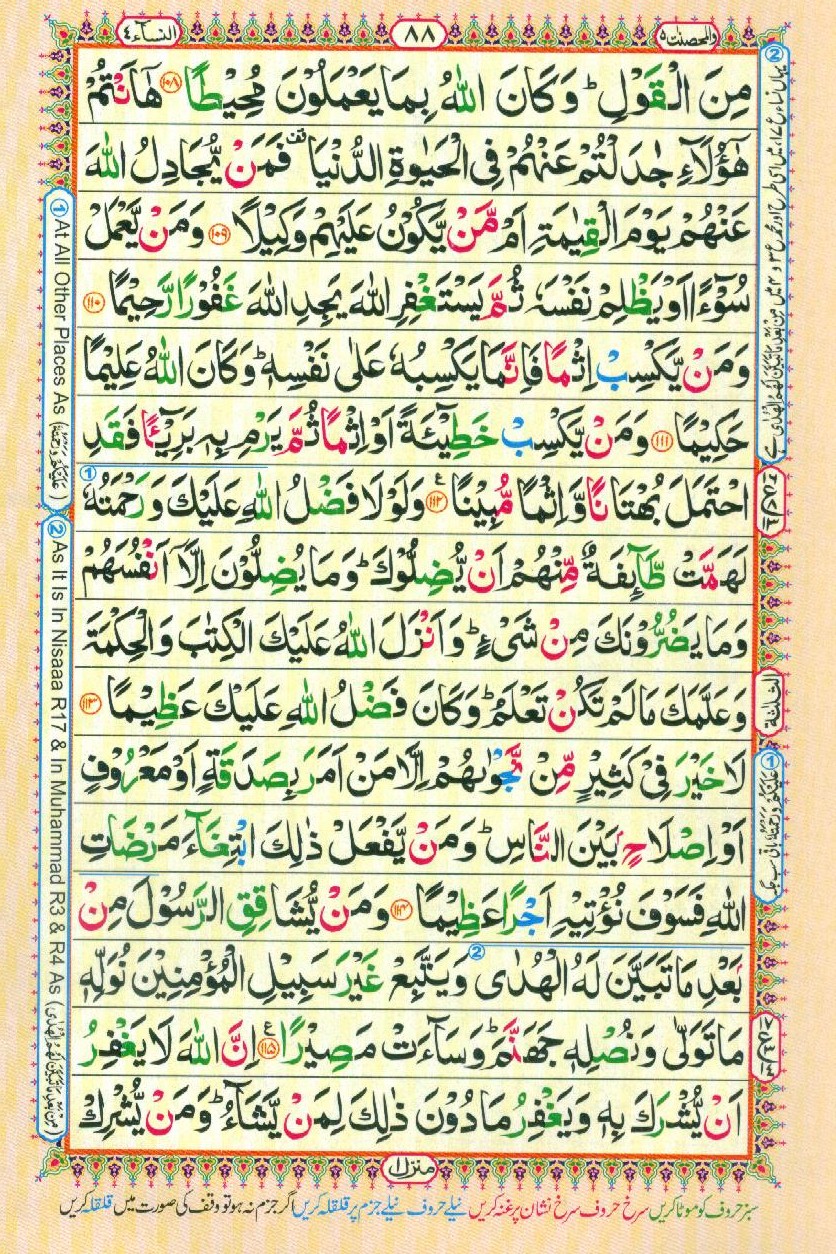 النساء ٤
٨٨
والمحصنت ٥
مِنَ الْقَوْلِ ؕ وَكَانَ اللّٰهُ بِمَا يَعْمَلُوْنَ مُحِيْطًا ۝۱۰۸ هٰۤاَنْتُمْ
هٰۤؤُلَآءِ جٰدَلْتُمْ عَنْهُمْ فِى الْحَيٰوةِ الدُّنْيَا ۣ فَمَنْ يُّجَادِلُ اللّٰهَ
عَنْهُمْ يَوْمَ الْقِيٰمَةِ اَمْ مَّنْ يَّكُوْنُ عَلَيْهِمْ وَكِيْلًا ۝۱۰۹ وَمَنْ يَّعْمَلْ
سُوْٓءًا اَوْ يَظْلِمْ نَفْسَهٗ ثُمَّ يَسْتَغْفِرِ اللّٰهَ يَجِدِ اللّٰهَ غَفُوْرًا رَّحِيْمًا ۝۱۱۰
وَمَنْ يَّكْسِبْ اِثْمًا فَاِنَّمَا يَكْسِبُهٗ عَلٰى نَفْسِهٖ ؕ وَكَانَ اللّٰهُ عَلِيْمًا
حَكِيْمًا ۝۱۱۱ وَمَنْ يَّكْسِبْ خَطِيْٓئَةً اَوْ اِثْمًا ثُمَّ يَرْمِ بِهٖ بَرِيْٓئًا فَقَدِ
احْتَمَلَ بُهْتَانًا وَّاِثْمًا مُّبِيْنًا ۝۱۱۲ ع وَلَوْلَا فَضْلُ اللّٰهِ عَلَيْكَ وَرَحْمَتُهٗ
لَهَمَّتْ طَّآئِفَةٌ مِّنْهُمْ اَنْ يُّضِلُّوْكَ ؕ وَمَا يُضِلُّوْنَ اِلَّاۤ اَنْفُسَهُمْ
وَمَا يَضُرُّوْنَكَ مِنْ شَىْءٍ ؕ وَاَنْزَلَ اللّٰهُ عَلَيْكَ الْكِتٰبَ وَالْحِكْمَةَ
وَعَلَّمَكَ مَا لَمْ تَكُنْ تَعْلَمُ ؕ وَكَانَ فَضْلُ اللّٰهِ عَلَيْكَ عَظِيْمًا ۝۱۱۳
لَا خَيْرَ فِىْ كَثِيْرٍ مِّنْ نَّجْوٰىهُمْ اِلَّا مَنْ اَمَرَ بِصَدَقَةٍ اَوْ مَعْرُوْفٍ
اَوْ اِصْلَاحٍۢ بَيْنَ النَّاسِ ؕ وَمَنْ يَّفْعَلْ ذٰلِكَ ابْتِغَآءَ مَرْضَاتِ
اللّٰهِ فَسَوْفَ نُؤْتِيْهِ اَجْرًا عَظِيْمًا ۝۱۱۴ وَمَنْ يُّشَاقِقِ الرَّسُوْلَ مِنْۢ
بَعْدِ مَا تَبَيَّنَ لَهُ الْهُدٰى وَيَتَّبِعْ غَيْرَ سَبِيْلِ الْمُؤْمِنِيْنَ نُوَلِّهٖ
مَا تَوَلّٰى وَنُصْلِهٖ جَهَنَّمَ ؕ وَسَآءَتْ مَصِيْرًا ۝۱۱۵ ع اِنَّ اللّٰهَ لَا يَغْفِرُ
اَنْ يُّشْرَكَ بِهٖ وَيَغْفِرُ مَا دُوْنَ ذٰلِكَ لِمَنْ يَّشَآءُ ؕ وَمَنْ يُّشْرِكْ
منزل ١
سبز حروف کو موٹا کریں سرخ حروف سرخ نشان پر غنہ کریں نیلے حروف نیلے جزم پر قلقلہ کریں اگر جزم نہ ہو تو وقف کی صورت میں قلقلہ کریں
① At All Other Places As (عَلَيْكُمْ وَرَحْمَتُهٗ)
② As It Is In Nisaaa R17 & In Muhammad R3 & R4 As (مِنْۢ بَعْدِ مَا تَبَيَّنَ لَهُمُ الْهُدٰى)
الثلثة